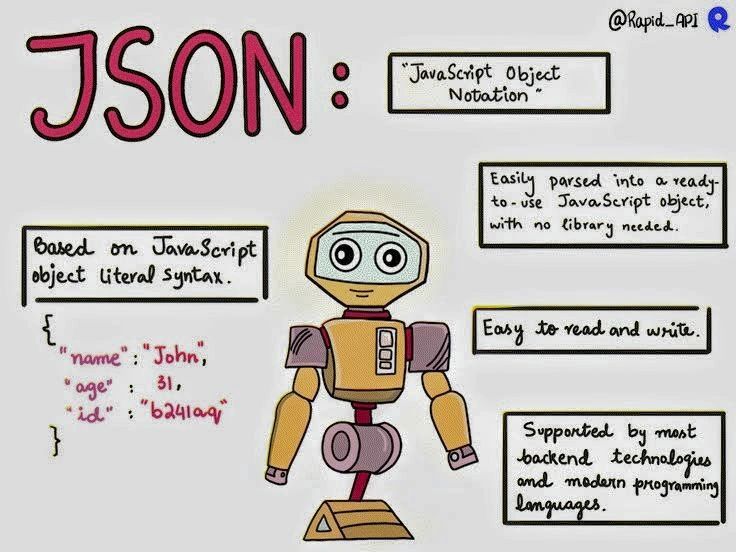 @Rapid_API
JSON:
"JavaScript Object
Notation"
Easily parsed into a ready-
to-use JavaScript object,
with no library needed.
Based on JavaScript
object literal syntax.
{
"name" : "John",
"age" : 31,
"id" : "b241aq"
}
Easy to read and write.
Supported by most
backend technologies
and modern programming
languages.